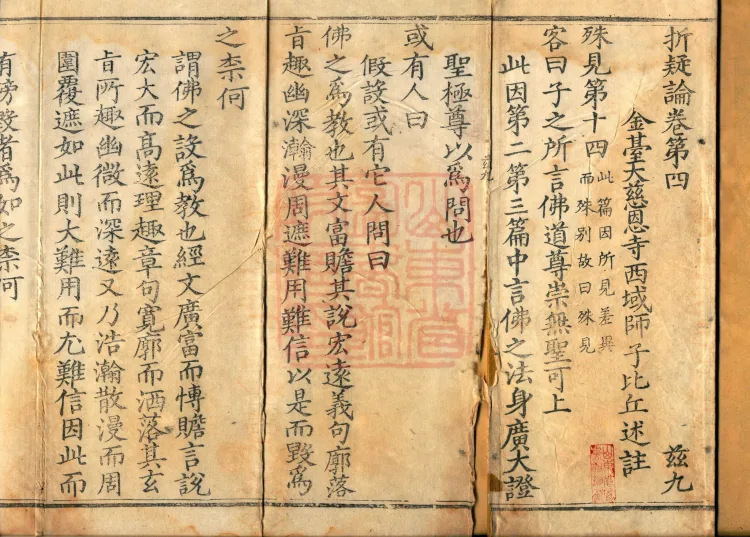 折疑論卷第四 茲九
金臺大慈恩寺西域師子比丘述註
殊見第十四 此篇因所見差異
而殊別故曰殊見
客曰子之所言佛道尊崇無聖可上
此因第二第三篇中言佛之法身廣大證
茲九
聖極尊以爲問也
或有人曰
假設或有它人問曰
佛之爲教也其文富贍其說宏遠義句廓落
旨趣幽深瀚漫周遮難用難信以是而毀爲
之柰何
謂佛之設爲教也經文廣富而愽贍言說
宏大而高遠理趣章句寬廓而洒落其玄
旨所趣幽微而深遠又乃浩瀚散漫而周
圍覆遮如此則大難用而尤難信因此而
有謗毀者爲如之柰何